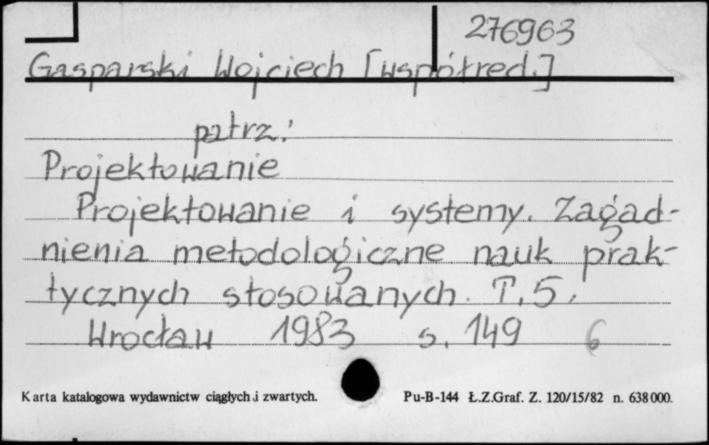 276963
Gasparski Wojciech [współred.]
patrz:
Projektowanie
Projektowanie i systemy. Zagad-
nienia metodologiczne nauk prak-
tycznych stosowanych. T. 5.
Wrocław 1983 s. 149 6
Karta katalogowa wydawnictw ciągłych i zwartych. Pu-B-144 Ł.Z.Graf. Z. 120/15/82 n. 638 000.